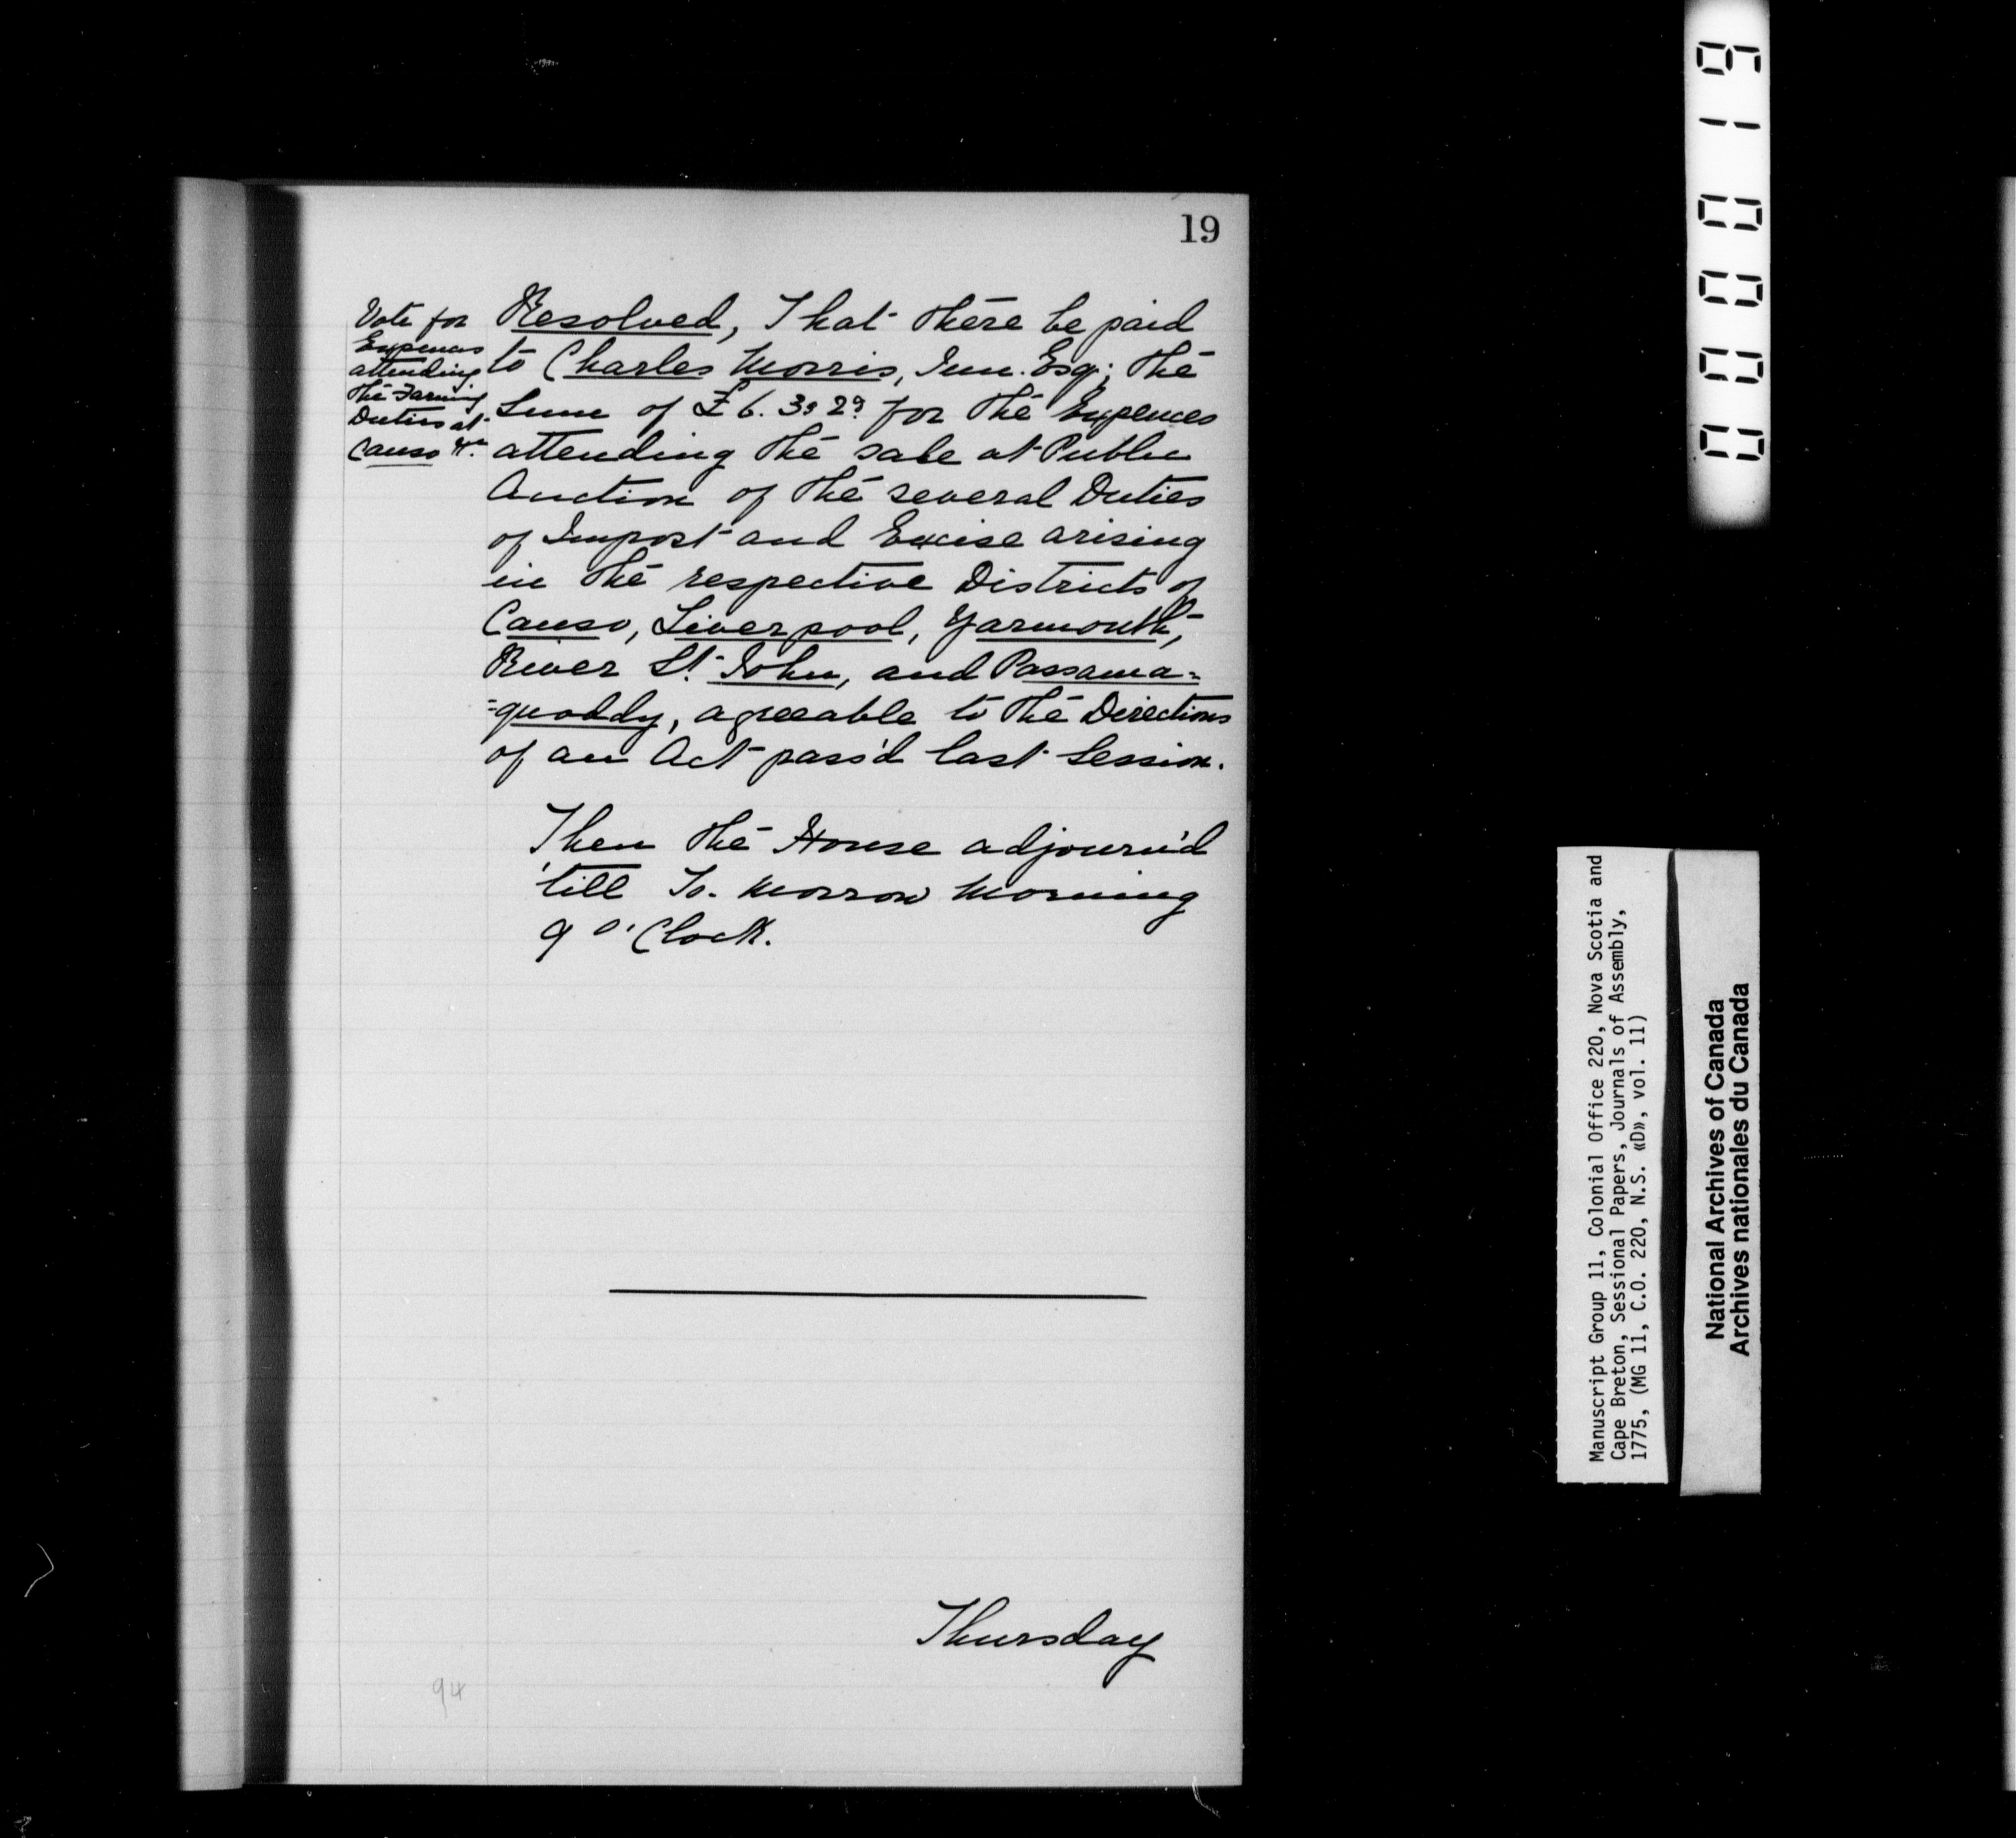 19
Vote for
Expences
attending
the Farming
Duties at
Canso &c.
Resolved, That there be paid
to Charles Morris, Jun. Esq; the
Sum of £6. 3s 2d. for the Expences
attending the sale at Public
Auction of the several Duties
of Impost and Excise arising
in the respective Districts of
Canso, Liverpool, Yarmouth,
River St. John, and Passama=
=quoddy, agreeable to the Directions
of an Act pass'd last Session.
Then the House adjourn'd
'till To-Morrow Morning
9 o'Clock.
Thursday
94
000019
Manuscript Group 11, Colonial Office 220, Nova Scotia and
Cape Breton, Sessional Papers, Journals of Assembly,
1775, (MG 11, C.O. 220, N.S. «D», vol. 11)
National Archives of Canada
Archives nationales du Canada